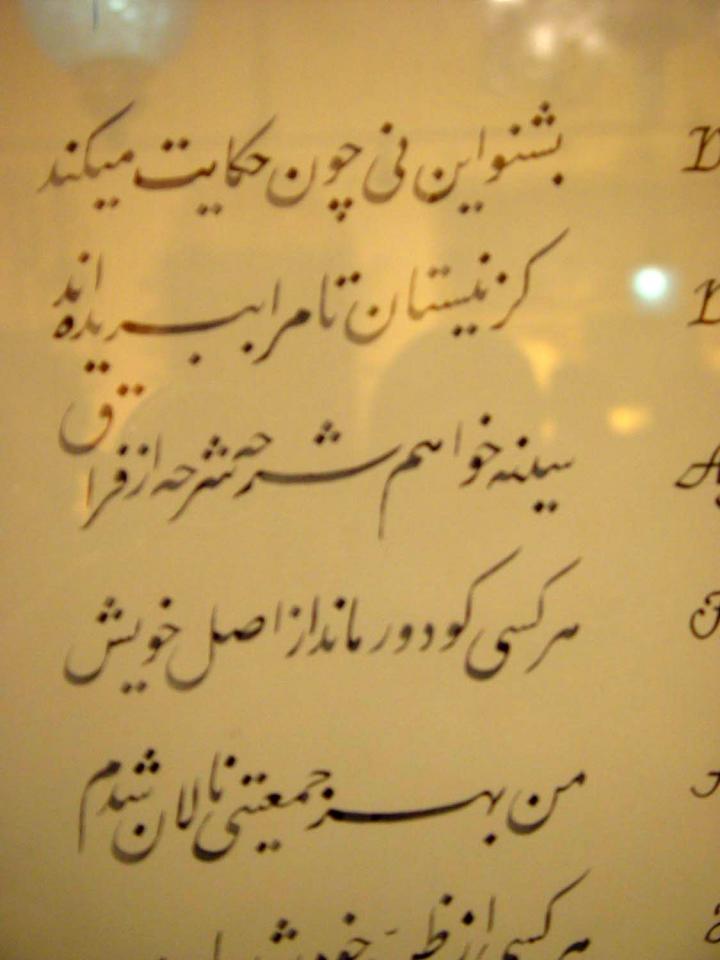 بشنو این نی چون حکایت میکند
کز نیستان تا مرا ببریده‌اند
سینه خواهم شرحه شرحه از فراق
هر کسی کو دور ماند از اصل خویش
من بهر جمعیتی نالان شدم
هر کسی از ظن خود شد